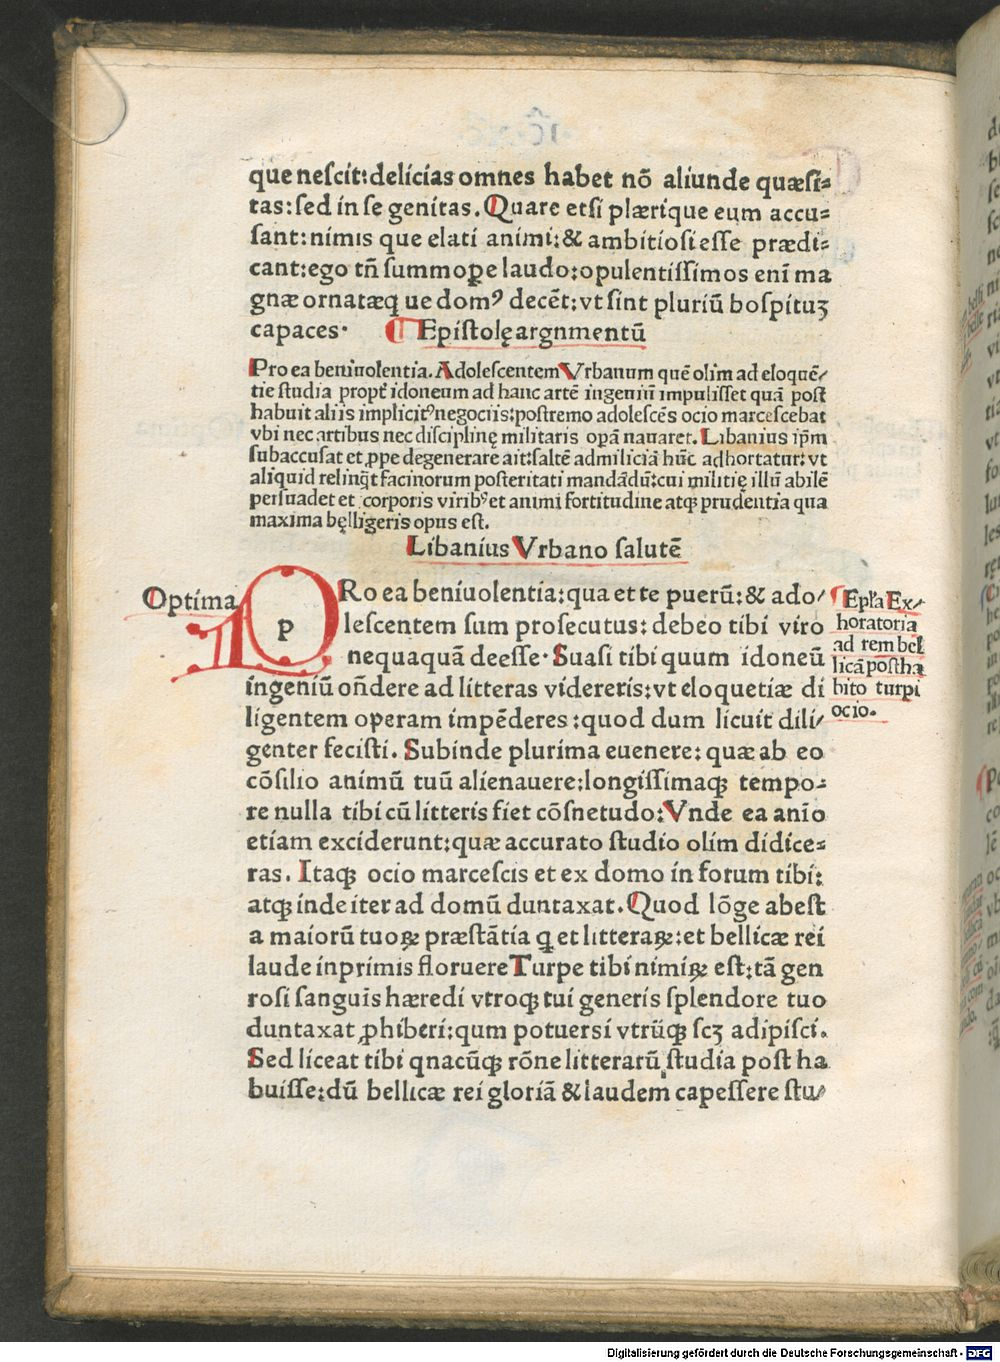 que nescit:delicias omnes habet nō aliunde quæsi=
tas:sed in se genitas. Quare etsi plæriq̃ue eum accu=
sant:nimis que elati animi:& ambitiosi esse prædi=
cant:ego tñ summoꝑe laudo:opulentissimos eni᷑ ma
gnæ ornatæq ue domꝰ decēt:vt sint pluriū hospituꝫ
capaces· ¶ Epistolę argnmentū
Pro ea beniuolentia. Adolescentem Vrbanum quē olim ad eloquē/
tie studia propt᷑ idoneum ad hanc artē ingeniū impulisset quā post
habuit aliis implicitꝰ negociis:postremo adolescēs ocio marcescebat
vbi nec artibus nec disciplinę militaris opā nauaret. Libanius ip̄m
subaccusat et ꝓpe degenerare ait:saltē ad miliciā hūc adhortatur:vt
aliquid relinq̄t facinorum posteritati mandādū:cui militię illū abilē
persuadet et corporis viribꝰ et animi fortitudine atqꝫ prudentia qua
maxima bęlligeris opus est.
Libanius Vrbano salutē
Optima
PRo ea beniuolentia:qua et te puerū:& ado/
lescentem sum prosecutus: debeo tibi viro
nequaquā deesse· Suasi tibi quum idoneū
ingeniū oñdere ad litteras videreris:vt eloquetiæ di
ligentem operam impēderes:quod dum licuit dili/
genter fecisti. Subinde plurima euenere: quæ ab eo
cōsilio animū tuū alienauere:longissimaqꝫ tempo=
re nulla tibi cū litteris fiet cōsnetudo:Vnde ea anīo
etiam exciderunt:quæ accurato studio olim didice=
ras. Itaqꝫ ocio marcescis et ex domo in forum tibi:
atqꝫ inde iter ad domū duntaxat. Quod lōge abest
a maiorū tuoꝝ præstātia q̱ et litteraꝝ:et bellicæ rei
laude inprimis floruere Turpe tibi nimiꝝ est:tā gen
rosi sanguīs hæredi vtroqꝫ tui generis splendore tuo
duntaxat ꝓhiberi:qum potuersi vtrūqꝫ scꝫ adipisci.
Sed liceat tibi qnacūqꝫ rōne litterarū studia post ha
buisse:dū bellicæ rei gloriā & laudem capessere stu/
¶ Epl'a Ex/
horatoria
ad rem bel
licā postha
bito turpi
ocio.
Digitalisierung gefördert durch die Deutsche Forschungsgemeinschaft - DFG